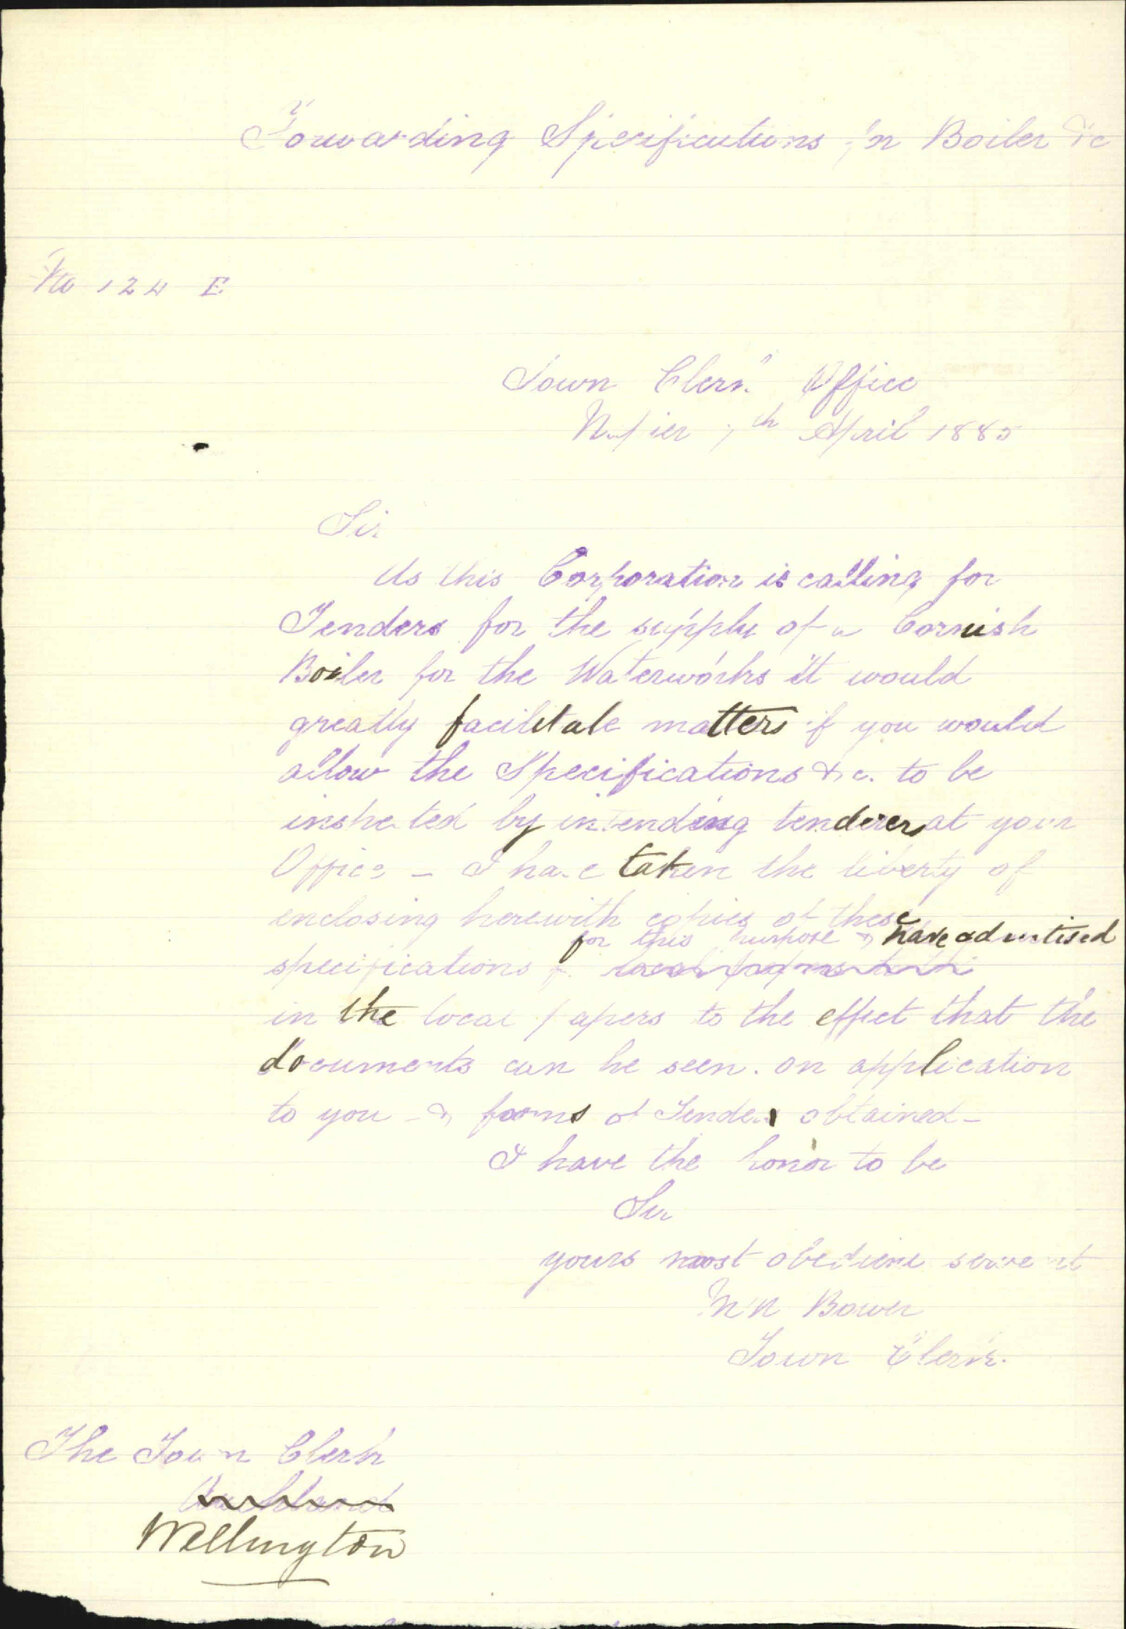 Forwarding Specifications fn Boiler &c
No 124 E
Town Clerk's Office
Napier 7th April 1885
Sir
As this Corporation is calling for
Tenders for the supply of a Cornish
Boiler for the Waterworks it would
greatly facilitate matters if you would
allow the Specifications &c. to be
inspected by intending tenderers at your
Office – I have taken the liberty of
enclosing herewith copies of these
for this purpose & have advertised
specifications
in the local papers to the effect that the
documents can be seen on application
to you – & forms of Tender obtained –
I have the honor to be
Sir
yours most obedient servant
Bower
Town Clerk.
The Town Clerk
Auckland
Wellington